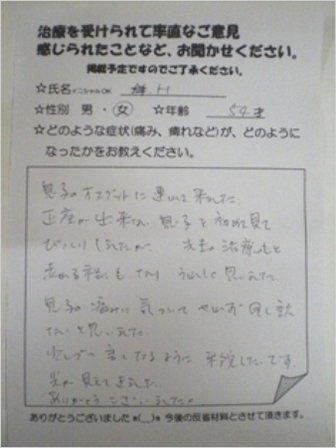 治療を受けられて率直なご意見
感じられたことなど、お聞かせください。
掲載予定ですのでご了承ください。
☆氏名 イニシャルOK H
☆性別 男・女 ☆年齢 54才
☆どのような症状(痛み、痺れなど)が、どのように
なったかをお教えください。
息子のオスグットに連いて来ました。
正座が出来ない息子を初めて見て
びっくりしましたが、先生の治療のもと
走れる様にもなり うれしく思いました。
息子の痛みに気づいて
と思いました。
少しづつ良くなるように 来院したいです。
光が見えて来ました。
ありがとうございました。
ありがとうございました m(__)m 今後の反省材料とさせて頂きます。